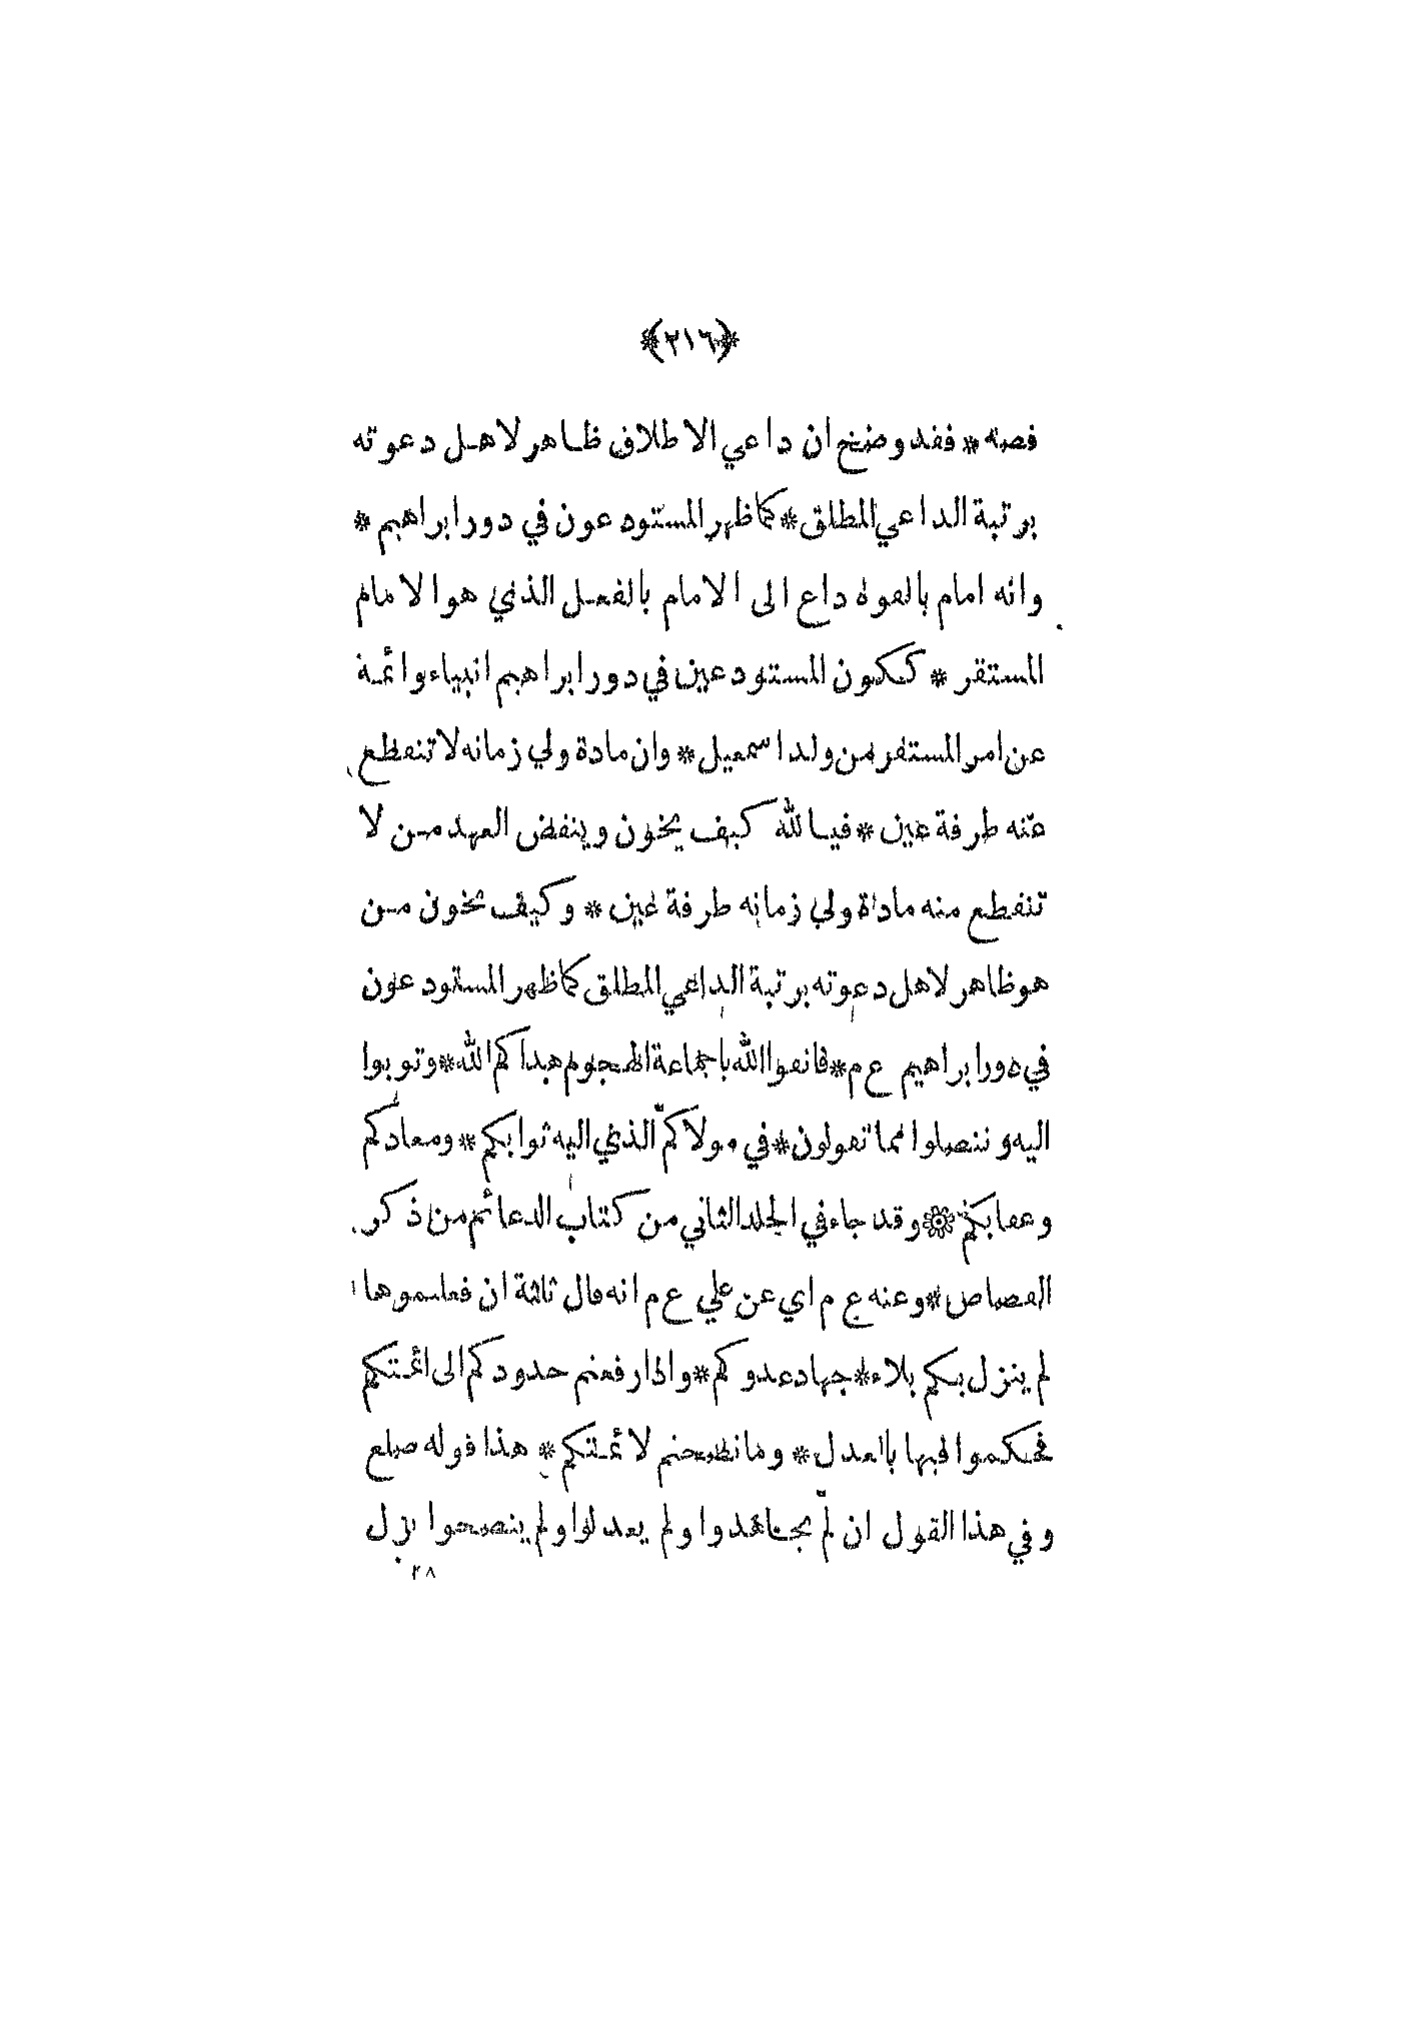 ﴿٢١٦﴾
قصته * فقد وضح ان داعي الاطلاق ظاهر لاهل دعوته
برتبة الداعي المطلق * كما ظهر المستودعون في دور ابراهيم *
وانه امام بالقوة داع الى الامام بالفعل الذي هو الامام
المستقر * ككون المستودعين في دور ابراهيم انبياء وائمة
عن امر المستقر من ولد اسمعيل * وان مادة ولي زمانه لا تنقطع
عنه طرفة عين * فيالله كيف يخون وينقض العهد من لا
تنقطع منه مادة ولي زمانه طرفة عين * وكيف يخون من
هو ظاهر لاهل دعوته برتبة الداعي المطلق كما ظهر المستودعون
في دور ابراهيم ع م * فاتقوا الله يا جماعة الهجوم هداكم الله * وتوبوا
اليه وتنصلوا مما تقولون * في مولاكم الذي اليه ثوابكم * ومعادكم
وعقابكم * وقد جاء في الجلد الثاني من كتاب الدعائم من ذكر
القصاص * وعنه ع م اي عن علي ع م انه قال ثلثة ان فعلتموها
لم ينزل بكم بلاء * جهاد عدوكم * واذا رفعتم حدودكم الى ائمتكم
فحكموا فيها بالعدل * وما نصحتم لائمتكم * هذا قوله صلع
وفي هذا القول ان لم يجاهدوا ولم يعدلوا ولم ينصحوا نزل
٢٨